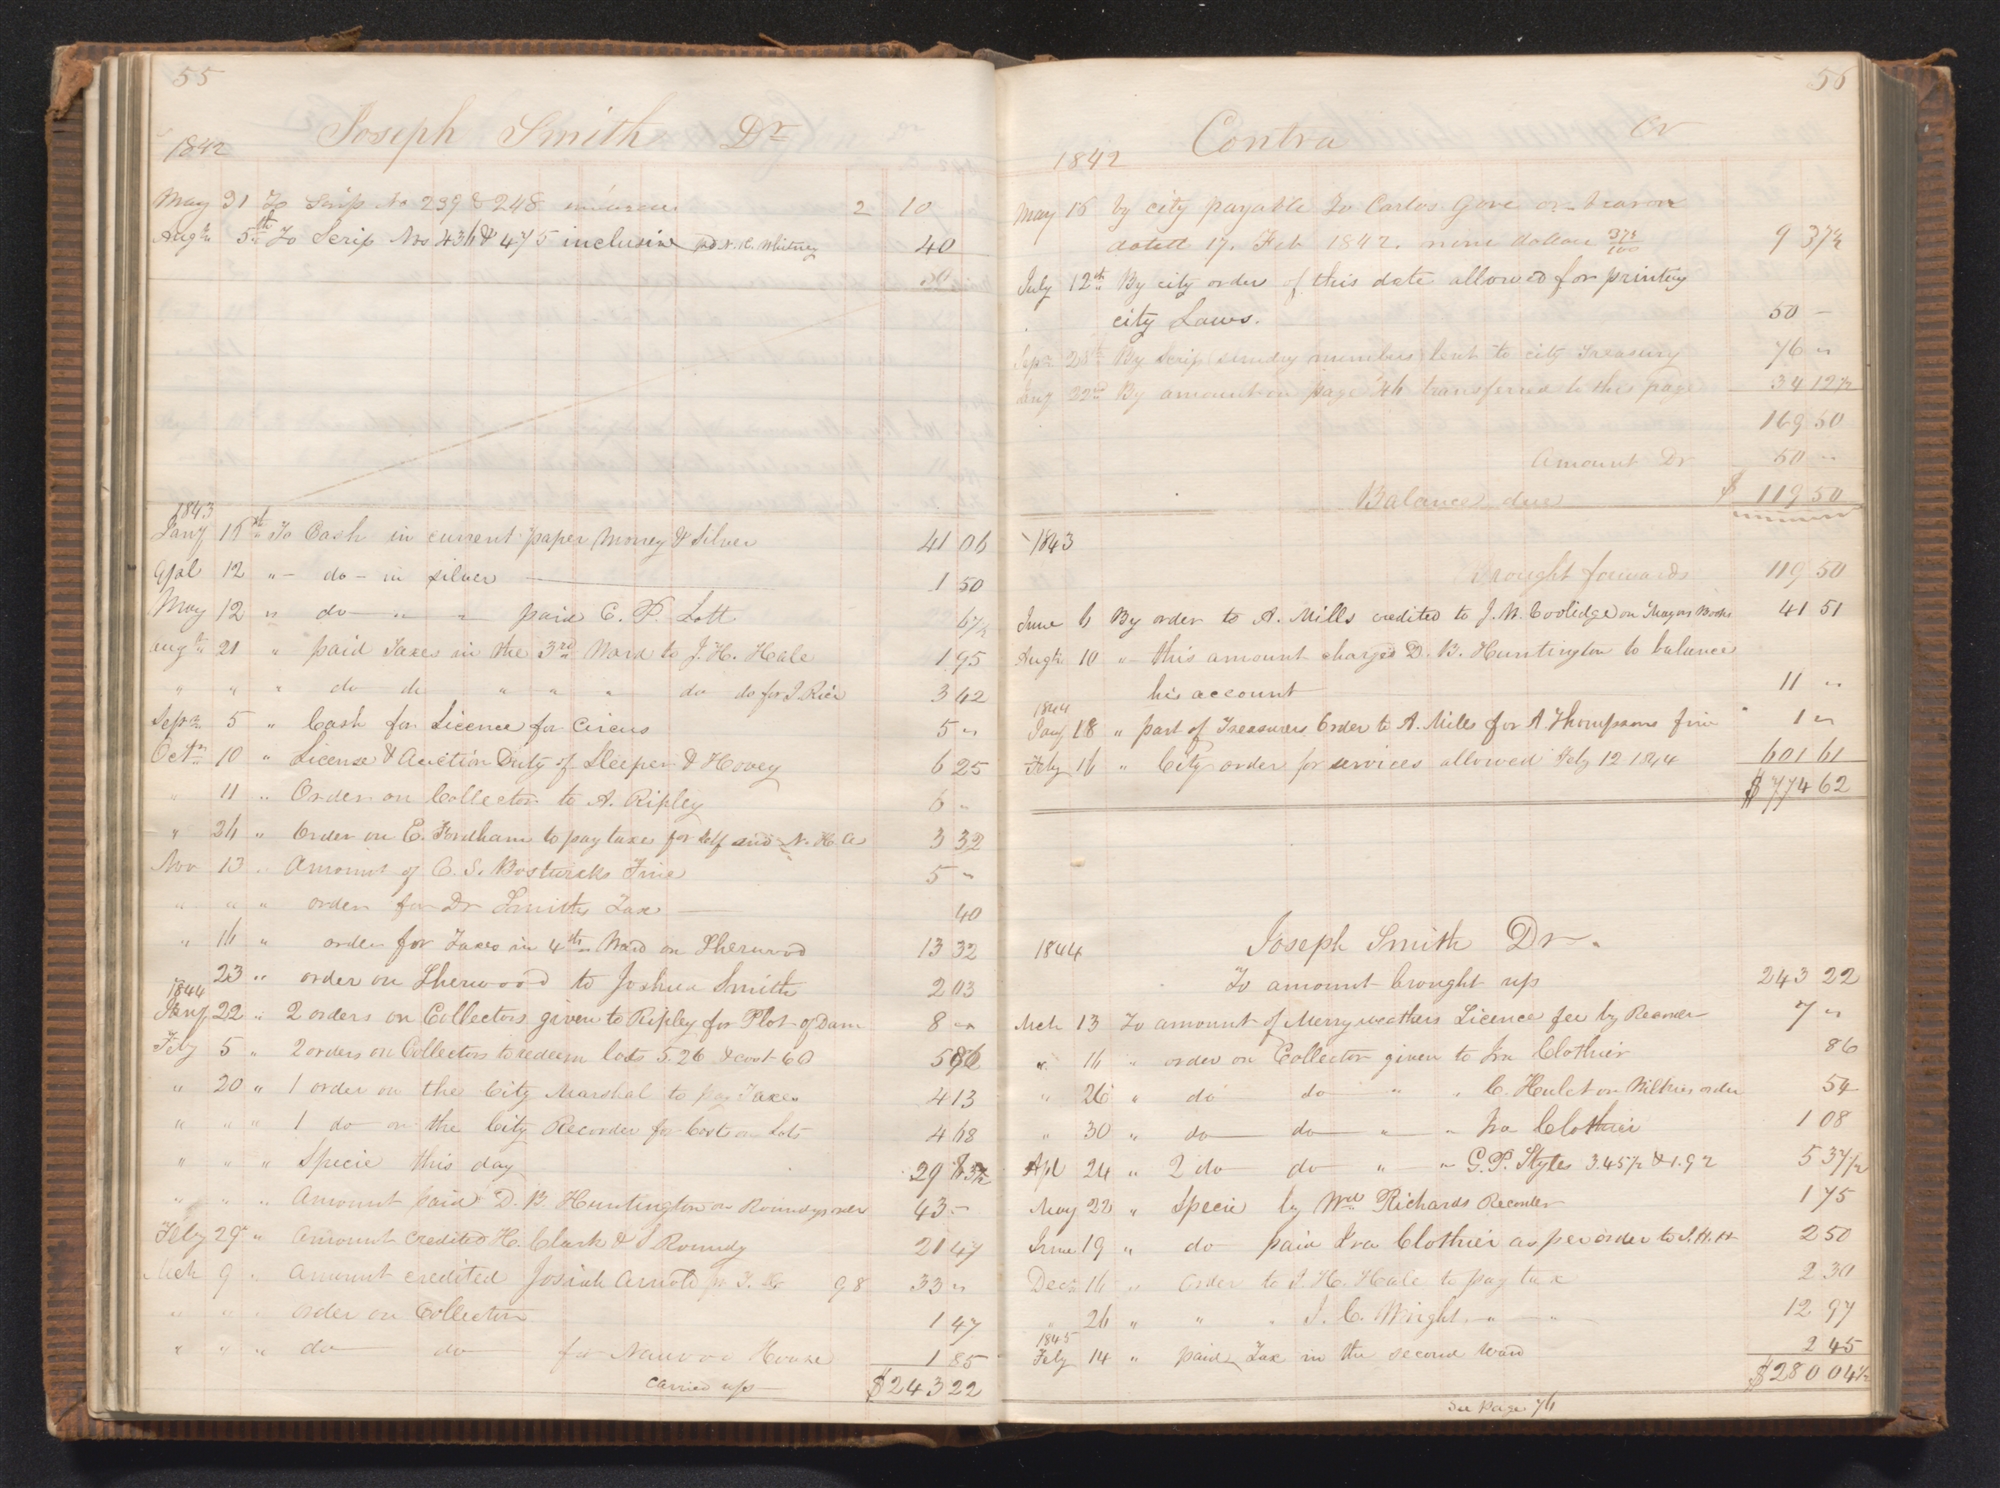 55
Joseph Smith Dr
1842
May 31 To Scrip No 239 & 248 2 10
Augt 5th To Scrip Nos 436 & 475 inclusive pd N. K. Whitney 40
50
1843
Jany 16th To Cash in current paper Money & Silver 41 06
Apl 12 " - do - in silver 1 50
May 12 " do " " paid C. P. Lott 67½
augt 21 " paid Taxes in the 3rd Ward to J. H. Hale 1 95
" " " do do " " " do do for I Rice 3 42
Sepr 5 " Cash for Licence for Circus 5 "
Octr 10 " License & Auction Duty of Sleeper & Hovey 6 25
" 11 " Order on Collector to A. Ripley 6 "
" 26 " Order on E. Fordham to pay taxes for self and N. H a 3 32
Nov 13 " Amount of C. S. Bostwicks Fine 5 "
" " " order for Dr Smiths Tax 40
" 16 " order for Taxes in 4th Ward on Sherwood 13 32
23 " order on Sherwood to Joshua Smith 2 03
1844
Jany 22 " 2 orders on Collectors given to Ripley for Plot of Dam 8 "
Feby 5 " 2 orders on Collectors to redeem lots 5.26 & cost 60 5 86
" 20 " 1 order on the City Marshal to pay Taxes 4 13
" " " 1 do on the City Recorder for Cost on Lots 4 68
" " " Specie this day 29
" " " Amount paid D. B. Huntington on Roundys order 43 -
Feby 29 " amount credited H. Clark & S Roundy 21 47
Mch 9 " amount credited Josiah Arnold 98 33 "
" " " order on Collector 1 47
" " " do do for Nauvoo House 1 85
carried up $243 22
56
Contra Cr
1842
May 16 by city payable to Carlos Gove or bearer
dated 17. Feb 1842. nine dollars 37½/100 9 37½
July 12th By city order of this date allowed for printing
city Laws. 50 -
Sepr 28th By Scrip (sundry numbers) lent to city Treasury 76 "
Aug 22nd By amount on page 46 transferred to this page 34 12½
169 50
amount Dr 50 "
Balance due $ 119 50
1843
Brought forwards 119 50
June 6 By order to A. Mills credited to J. W. Coolidge on Mayors Books 41 51
Augt 10 " this amount charged D. B. Huntington to balance
his account 11 "
1844
Jany 18 " part of Treasurers Order to A. Mills for A Thompsons fine 1 "
Feby 16 " City order for services allowed Feby 12 1844 601 61
$774 62
1844 Joseph Smith Dr.
To amount brought up 243 22
Mch 13 To amount of Merryweathers Licence fee by Recorder 7 "
" 16 " order on Collector given to Ira Clothier 86
" 26 " do do " " C. Hulet on Wilkies order 54
" 30 " do do " " Ira Clothier 1 08
Apl 24 " 2 do do " " G. P. Styles 3.45½ & 1.92 5 37½
May 22 " Specie by Wd Richards Recorder 1 75
June 19 " do paid Ira Clothier as per order to J. H. H 2 50
Decr 16 " order to J. H. Hale to pay tax 2 30
" 26 " " " J. C. Wright " - " 12 97
1845
Feby 14 " paid Tax in the second Ward 2 45
$280 04½
See Page 76